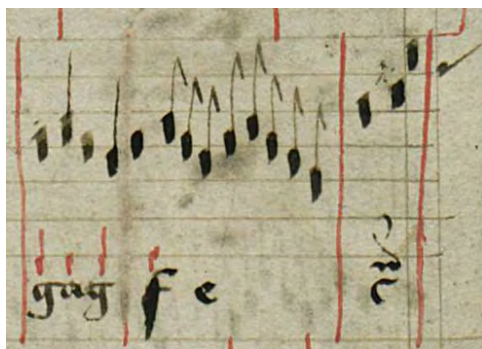 gag f e